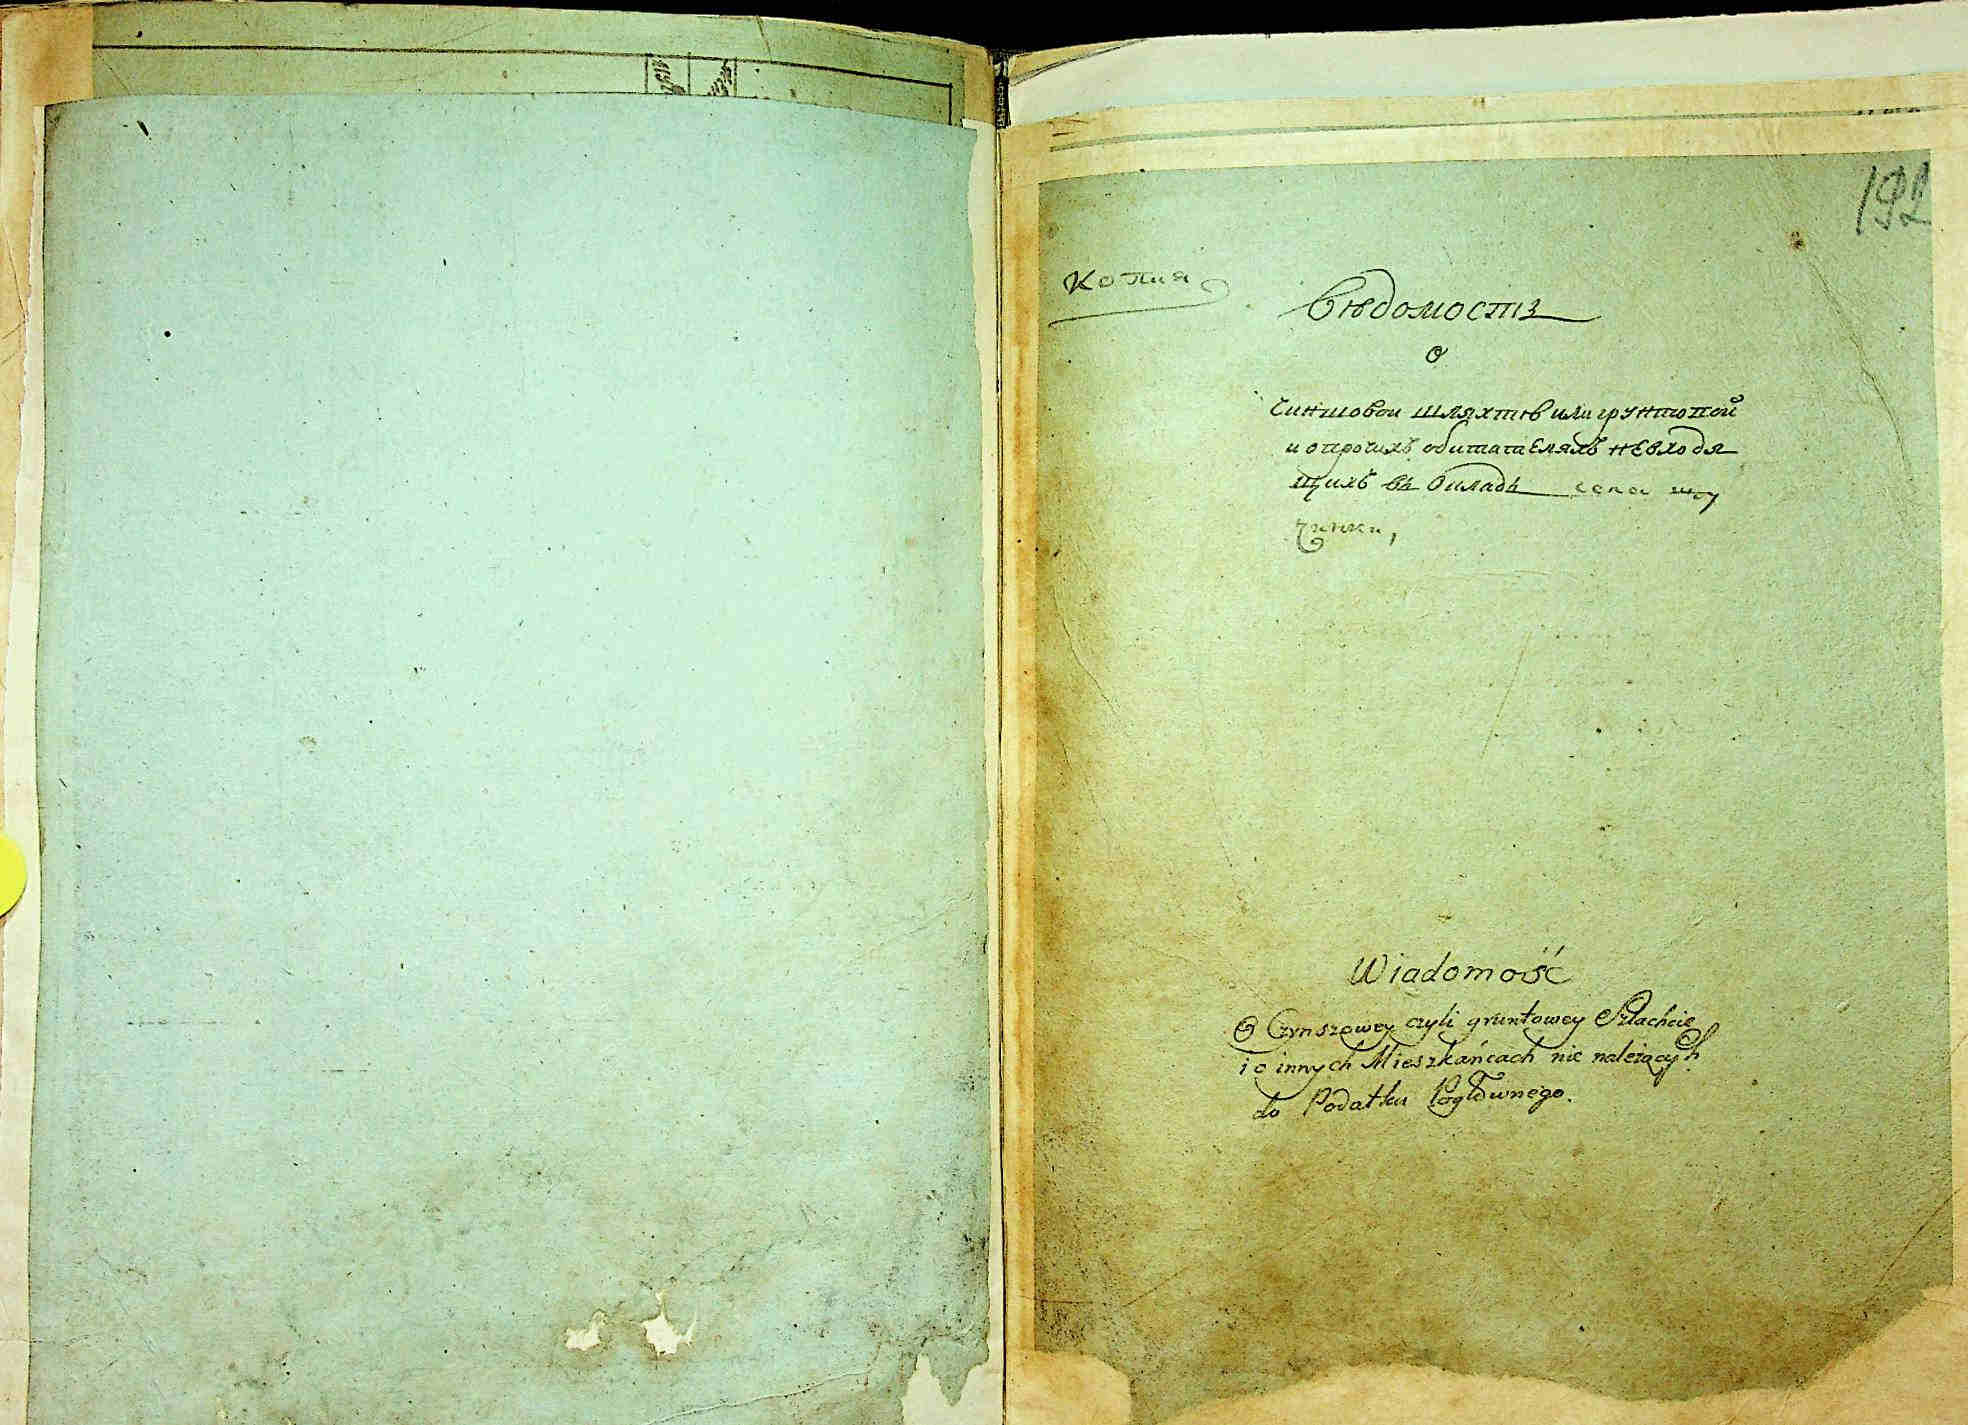 192
Копия
Вѣдомость
о
Чиншовои шляхтѣ или грунтовой
и опрочихъ обитателяхъ невходя
щихъ въ Окладъ села шу
чинки,
Wiadomość
O Czynszowey czyli gruntowey Szlachcie
i o innych Mieszkańcach nie należących
do Podatku Pogłównego.